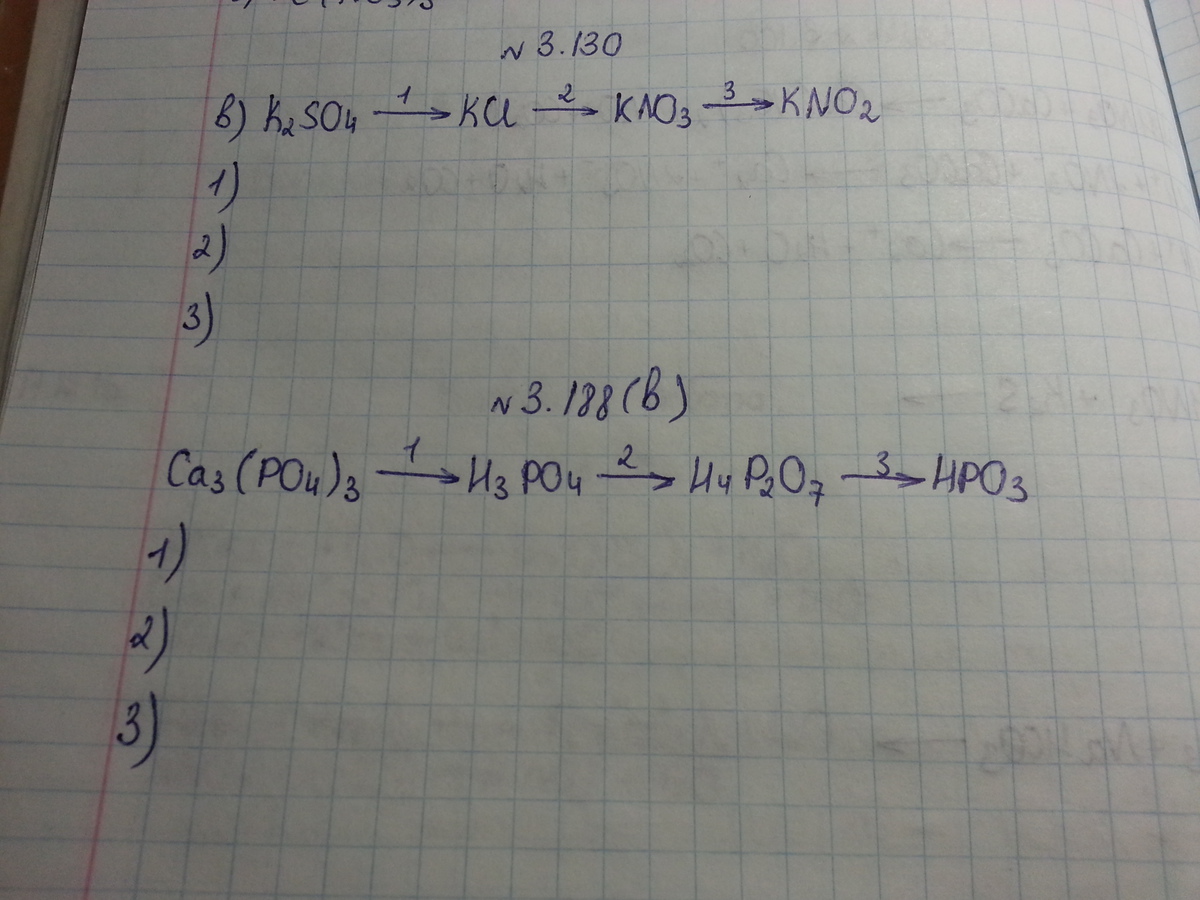 № 3.130
в) K₂SO₄ —1→ KCl —2→ KNO₃ —3→ KNO₂
1)
2)
3)
№ 3.188 (в)
Ca₃(PO₄)₃ —1→ H₃PO₄ —2→ H₄P₂O₇ —3→ HPO₃
1)
2)
3)